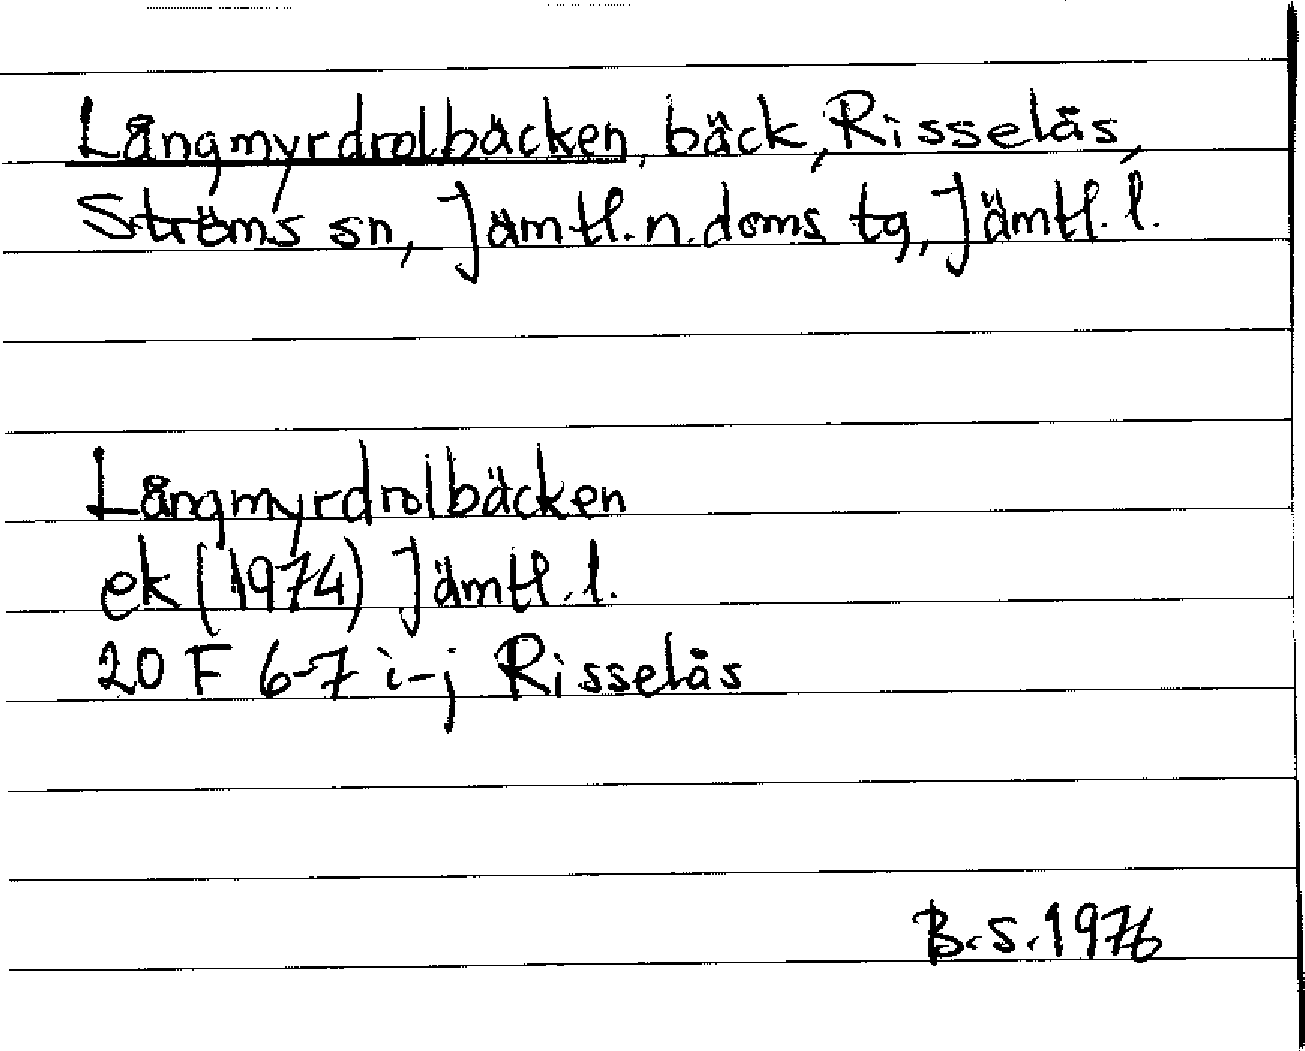 Långmyrdrolbäcken, bäck, Risselås,
Ströms sn, Jämtl. n. doms tg, Jämtl. l.
Långmyrdrolbäcken
ek (1974) Jämtl. l.
20 F 6-7 i-j Risselås
B. S. 1976